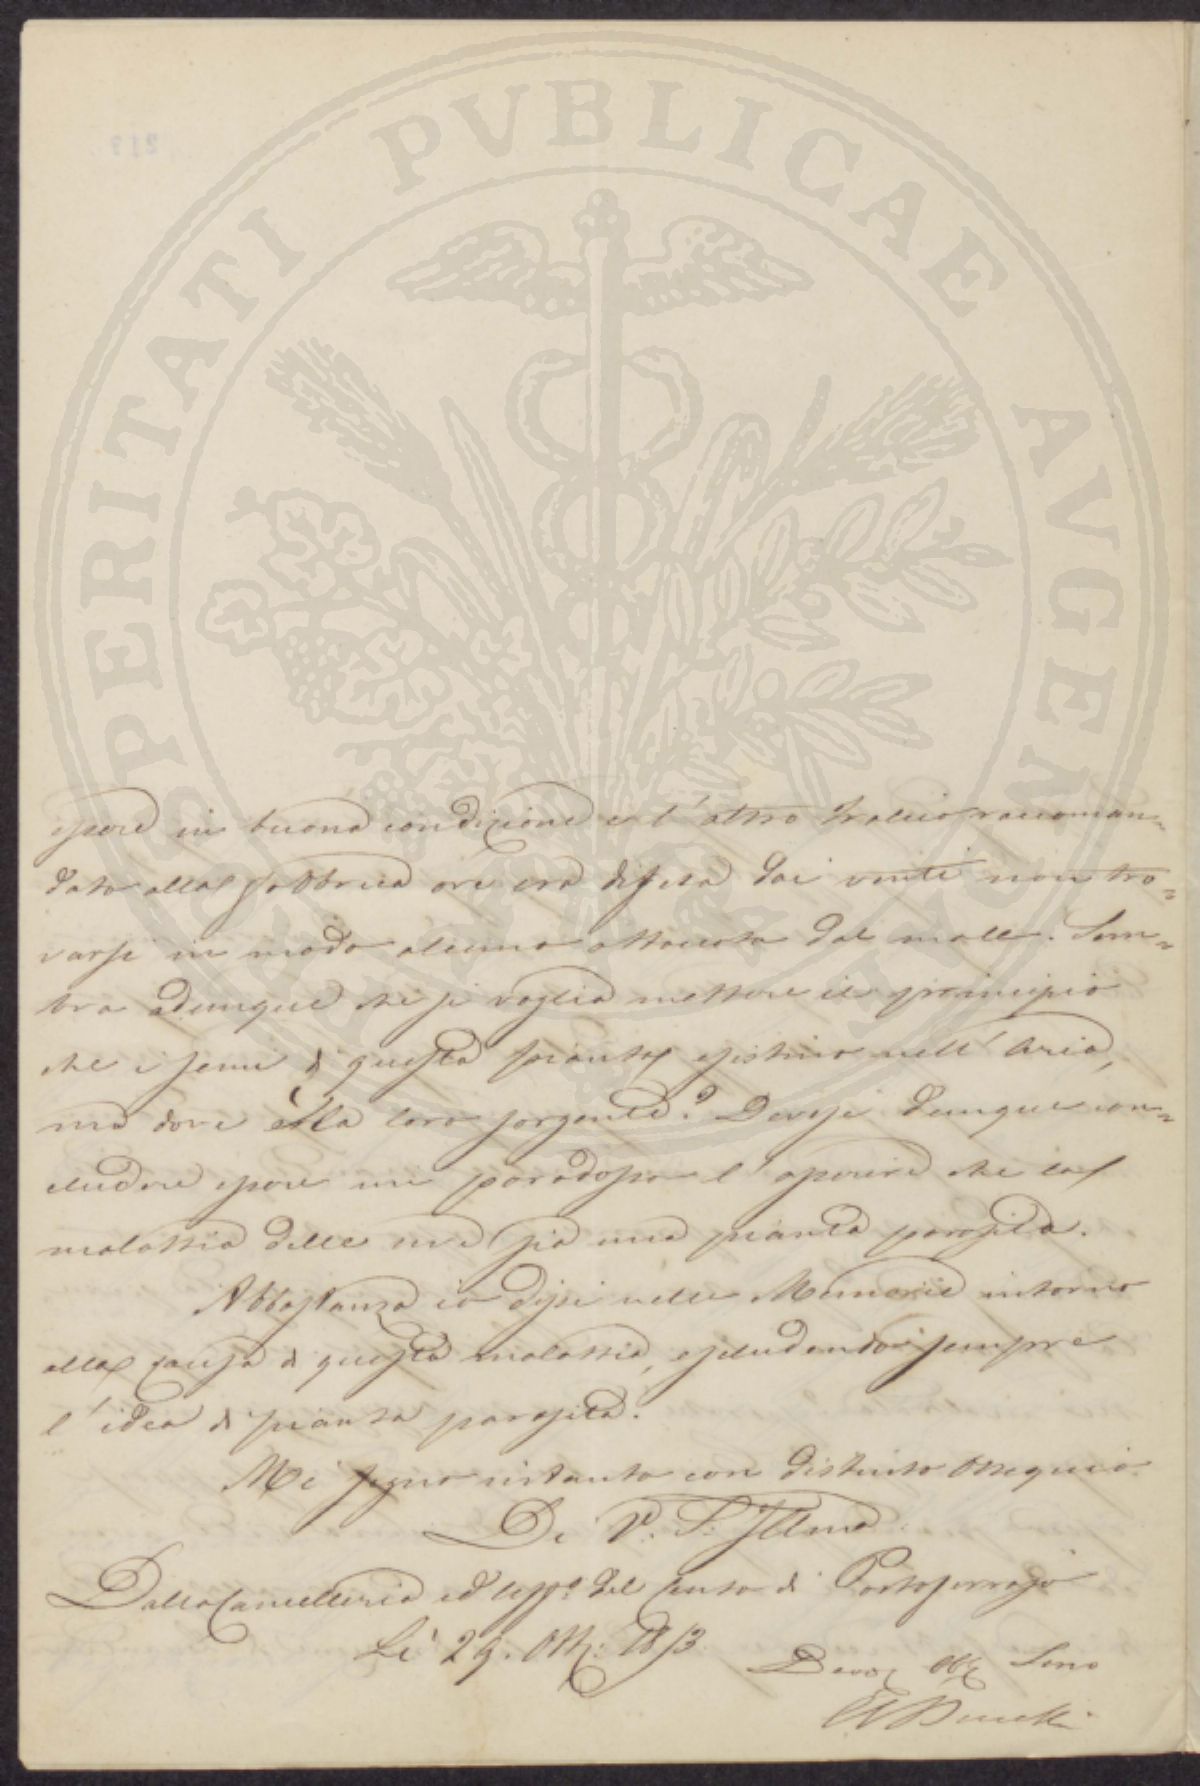 PROSPERITATI PVBLICAE AVGENDAE
213
essere in buona condizione e l'altro tralcio raccoman=
dato alla fabbrica ove era difesa dai venti non tro=
varsi in modo alcuno attaccata dal male. Sem=
bra adunque che si voglia mettere il principio
che i semi di questa pianta esistino nell'aria,
ma dove è la loro sorgente? Devesi dunque con=
cludere essere un paradosso l'asserire che la
malattia delle uve sia una pianta parasita.
Abbastanza io dissi nelle Memorie intorno
alla causa di questa malattia, escludendo sempre
l'idea di pianta parasita.
Mi segno intanto con distinto ossequio
Di V. S. Illma
Dalla Cancelleria ed Uffo. del Censo di Portoferrajo
Li 29. Ott: 1853
Devo Obb Servo